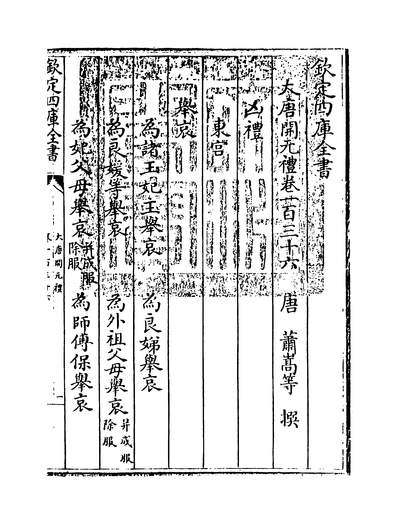 欽定四庫全書
大唐開元禮卷一百三十六　唐　蕭嵩等　撰
凶禮
東宫
舉哀
為諸王妃主舉哀　為良娣舉哀
為良媛等舉哀　為外祖父母舉哀并成服除服
為妃父母舉哀并成服除服　為師傅保舉哀
欽定四庫全書
大唐開元禮